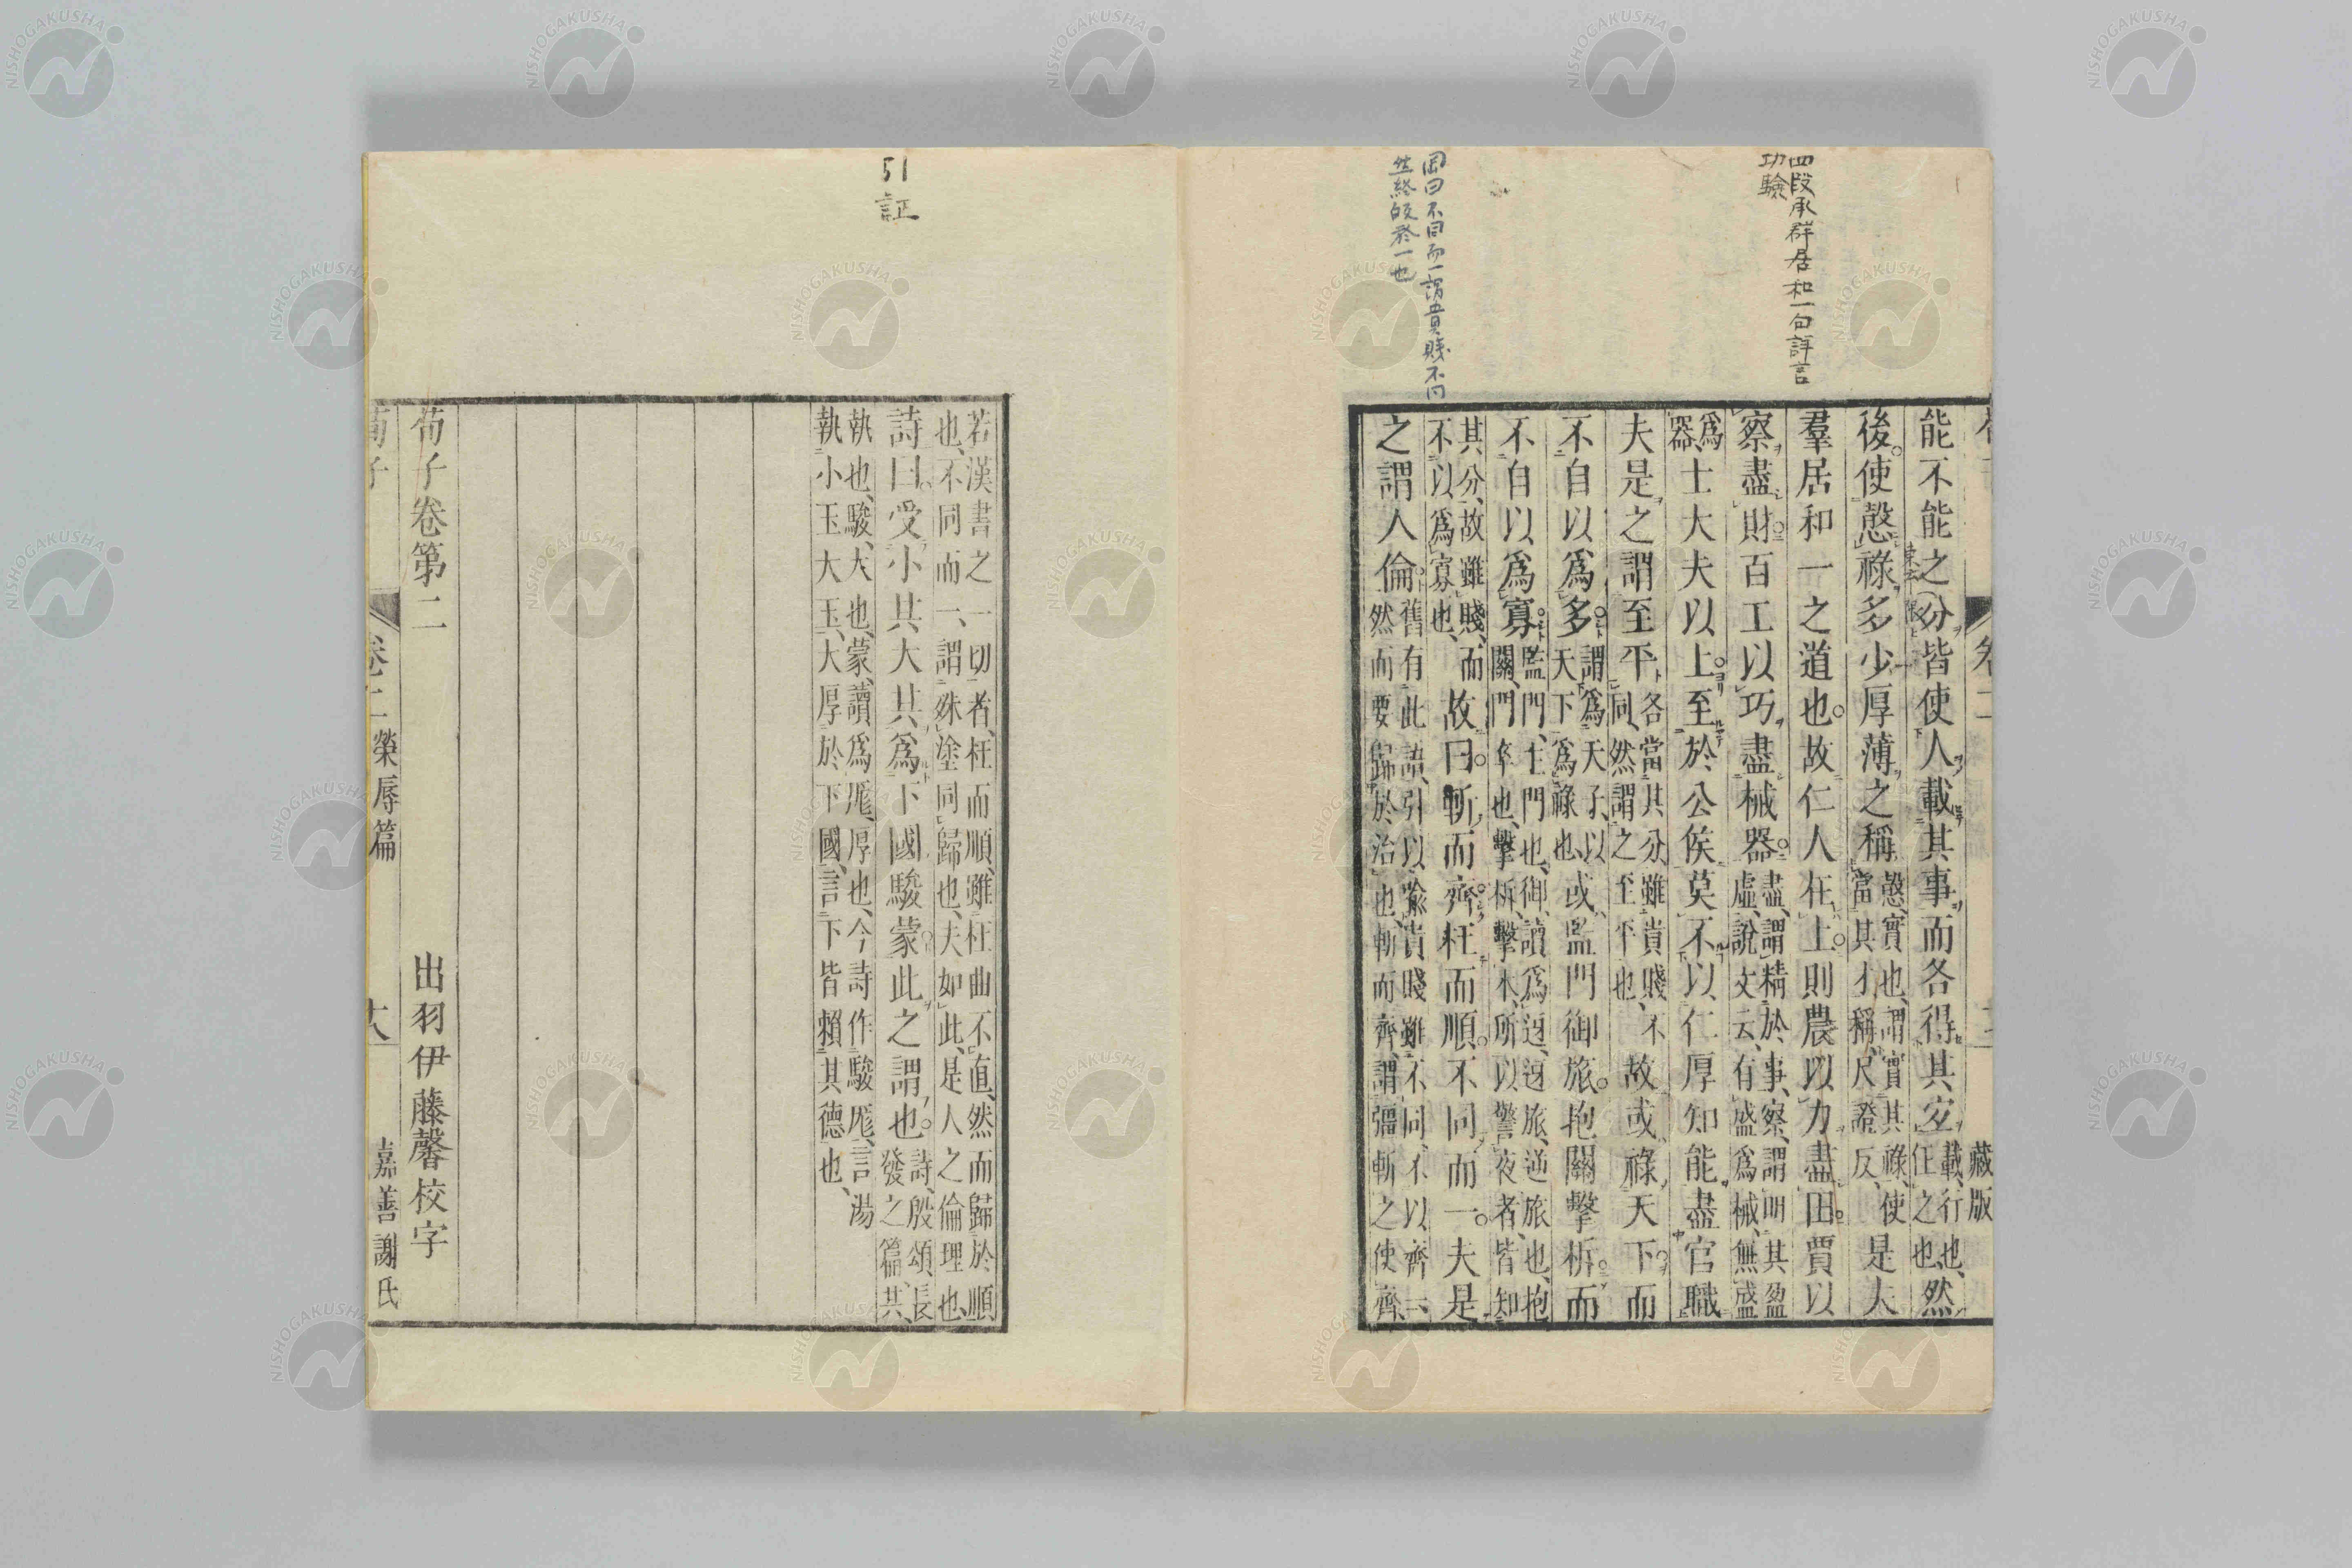 四段承群居和一句詳言
功驗
岡曰不同而一謂貴賤不同
然終皈於一也
藏版
能不能之分皆使人載其事而各得其宜載行也任之也然
後使慤祿多少厚薄之稱慤實也謂實其祿使當其才稱尺證反是夫
羣居和一之道也故仁人在上則農以力盡田賈以
察盡財百工以巧盡械器盡謂精於事察謂明其盈虛說文云有盛爲械無盛
爲器士大夫以上至於公侯莫不以仁厚知能盡官職
夫是之謂至平各當其分雖貴賤不同然謂之至平也故或祿天下而
不自以爲多謂爲天子以天下爲祿也或監門御旅抱關擊柝而
不自以爲寡監門主門也御讀爲迓迓旅逆旅也抱關門卒也擊柝擊木所以警夜者皆知
其分故雖賤而不以爲寡也故曰斬而齊枉而順不同而一夫是
之謂人倫舊有此語引以喻貴賤雖不同不以齊一然而要歸於治也斬而齊謂彊斬之使齊
引証
若漢書之一切者枉而順雖枉曲不直然而歸於順也不同而一謂殊塗同歸也夫如此是人之倫理也
詩曰受小共大共爲下國駿蒙此之謂也詩殷頌長發之篇共
執也駿大也蒙讀爲厖厚也今詩作駿厖言湯執小玉大玉大厚於下國言下皆賴其德也
荀子卷第二
出羽伊藤馨校字
荀子
卷二
榮辱篇
嘉善謝氏
NISHOGAKUSHA